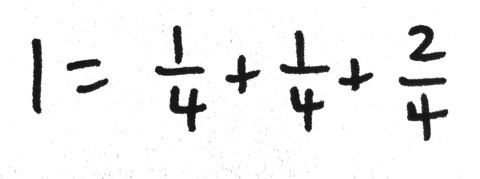 1 = 1/4 + 1/4 + 2/4